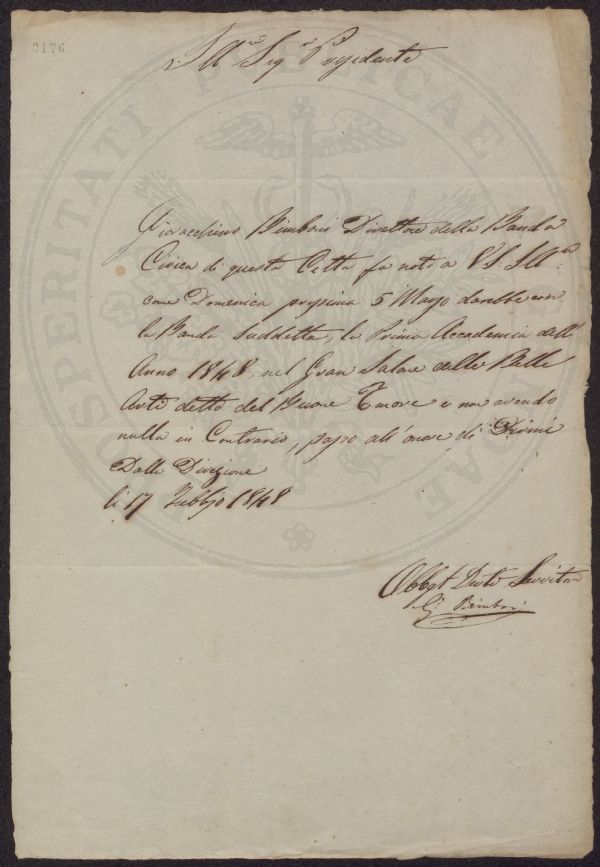 3176
Ill.mo Sig.r Presidente
Gioacchino Bimboni Direttore della Banda
Civica di questa Città fa noto a V.S. Ill.ma
come Domenica prossima 5 Marzo darebbe con
la Banda Suddetta, la Prima Accademia dell'
Anno 1848, nel Gran Salone delle Belle
Arti detto del Buon Umore e non avendo
nulla in Contrario, passo all' onore di Dirmi
Dalla Direzione
li 17 Febbjo 1848
Obbgt Devto Servitore
Gi Bimboni
PROSPERITATI PUBLICAE AUGENDAE